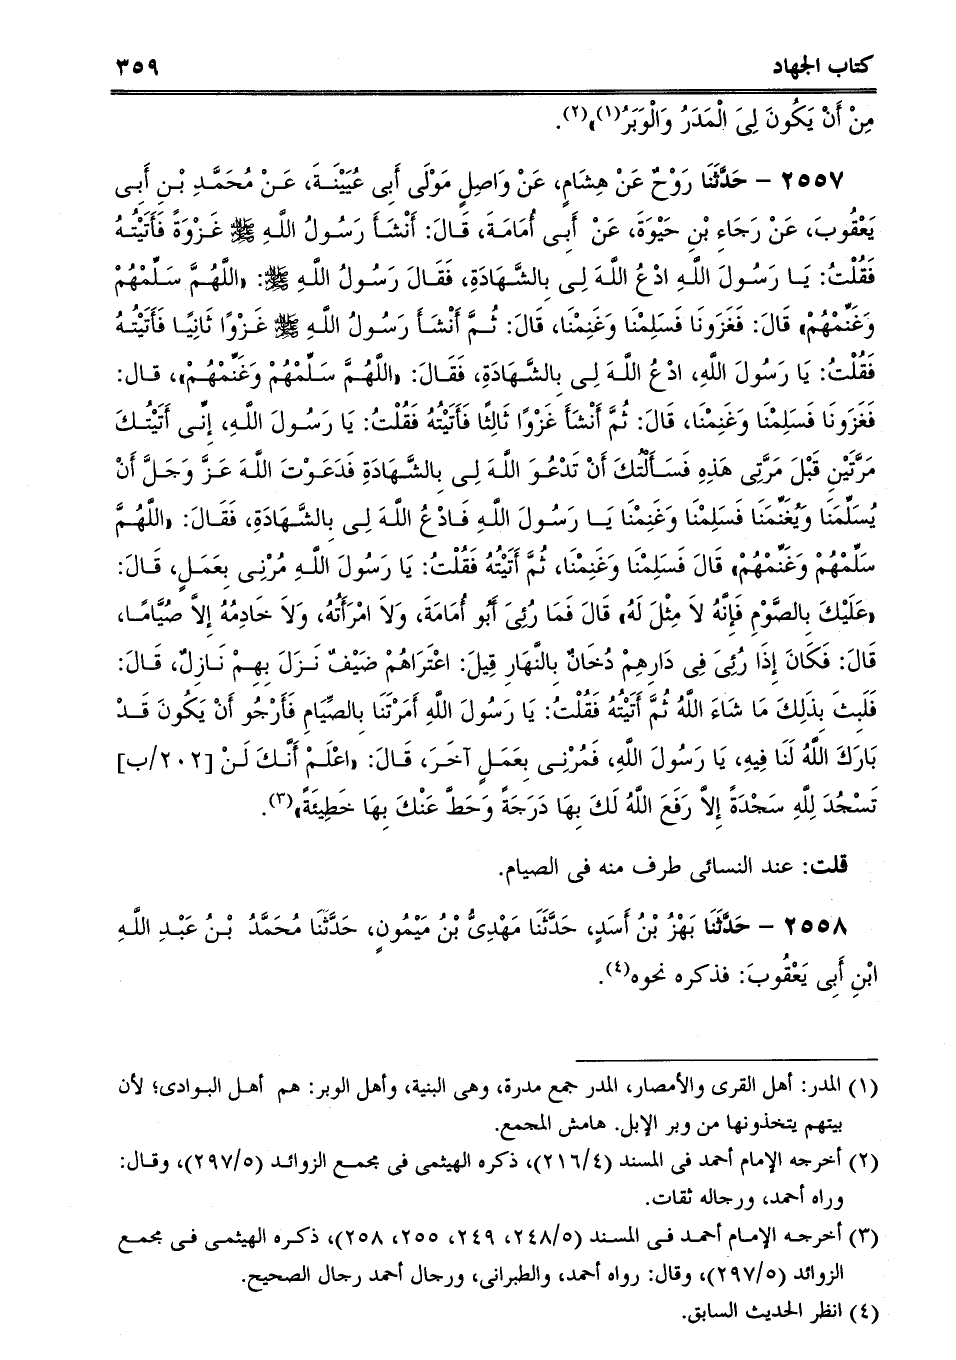 كتاب الجهاد ٣٥٩
مِنْ أَنْ يَكُونَ لِىَ الْمَدَرُ وَالْوَبَرُ(١)»(٢).
٢٥٥٧ – حَدَّثَنَا رَوْحٌ عَنْ هِشَامٍ، عَنْ وَاصِلٍ مَوْلَى أَبِى عُيَيْنَةَ، عَنْ مُحَمَّدِ بْنِ أَبِى
يَعْقُوبَ، عَنْ رَجَاءِ بْنِ حَيْوَةَ، عَنْ أَبِى أُمَامَةَ، قَالَ: أَنْشَأَ رَسُولُ اللَّهِ ﷺ غَزْوَةً فَأَتَيْتُهُ
فَقُلْتُ: يَا رَسُولَ اللَّهِ ادْعُ اللَّهَ لِى بِالشَّهَادَةِ، فَقَالَ رَسُولُ اللَّهِ ﷺ: «اللَّهُمَّ سَلِّمْهُمْ
وَغَنِّمْهُمْ» قَالَ: فَغَزَوْنَا فَسَلِمْنَا وَغَنِمْنَا، قَالَ: ثُمَّ أَنْشَأَ رَسُولُ اللَّهِ ﷺ غَزْوًا ثَانِيًا فَأَتَيْتُهُ
فَقُلْتُ: يَا رَسُولَ اللَّهِ، ادْعُ اللَّهَ لِى بِالشَّهَادَةِ، فَقَالَ: «اللَّهُمَّ سَلِّمْهُمْ وَغَنِّمْهُمْ»، قال:
فَغَزَوْنَا فَسَلِمْنَا وَغَنِمْنَا، قَالَ: ثُمَّ أَنْشَأَ غَزْوًا ثَالِثًا فَأَتَيْتُهُ فَقُلْتُ: يَا رَسُولَ اللَّهِ، إِنِّى أَتَيْتُكَ
مَرَّتَيْنِ قَبْلَ مَرَّتِى هَذِهِ فَسَأَلْتُكَ أَنْ تَدْعُوَ اللَّهَ لِى بِالشَّهَادَةِ فَدَعَوْتَ اللَّهَ عَزَّ وَجَلَّ أَنْ
يُسَلِّمَنَا وَيُغَنِّمَنَا فَسَلِمْنَا وَغَنِمْنَا يَا رَسُولَ اللَّهِ فَادْعُ اللَّهَ لِى بِالشَّهَادَةِ، فَقَالَ: «اللَّهُمَّ
سَلِّمْهُمْ وَغَنِّمْهُمْ» قَالَ فَسَلِمْنَا وَغَنِمْنَا، ثُمَّ أَتَيْتُهُ فَقُلْتُ: يَا رَسُولَ اللَّهِ مُرْنِى بِعَمَلٍ، قَالَ:
«عَلَيْكَ بِالصَّوْمِ فَإِنَّهُ لاَ مِثْلَ لَهُ» قَالَ فَمَا رُئِىَ أَبُو أُمَامَةَ، وَلاَ امْرَأَتُهُ، وَلاَ خَادِمُهُ إِلاَّ صُيَّامًا،
قَالَ: فَكَانَ إِذَا رُئِىَ فِى دَارِهِمْ دُخَانٌ بِالنَّهَارِ قِيلَ: اعْتَرَاهُمْ ضَيْفٌ نَزَلَ بِهِمْ نَازِلٌ، قَالَ:
فَلَبِثَ بِذَلِكَ مَا شَاءَ اللَّهُ ثُمَّ أَتَيْتُهُ فَقُلْتُ: يَا رَسُولَ اللَّهِ أَمَرْتَنَا بِالصِّيَامِ فَأَرْجُو أَنْ يَكُونَ قَدْ
بَارَكَ اللَّهُ لَنَا فِيهِ، يَا رَسُولَ اللَّهِ، فَمُرْنِى بِعَمَلٍ آخَرَ، قَالَ: «اعْلَمْ أَنَّكَ لَنْ [٢٠٢/ب]
تَسْجُدَ لِلَّهِ سَجْدَةً إِلاَّ رَفَعَ اللَّهُ لَكَ بِهَا دَرَجَةً وَحَطَّ عَنْكَ بِهَا خَطِيئَةً»(٣).
قلت: عند النسائى طرف منه فى الصيام.
٢٥٥٨ – حَدَّثَنَا بَهْزُ بْنُ أَسَدٍ، حَدَّثَنَا مَهْدِىُّ بْنُ مَيْمُونٍ، حَدَّثَنَا مُحَمَّدُ بْنُ عَبْدِ اللَّهِ
ابْنِ أَبِى يَعْقُوبَ: فذكره نحوه(٤).
(١) المدر: أهل القرى والأمصار، المدر جمع مدرة، وهى البنية، وأهل الوبر: هم أهل البوادى؛ لأن
بيتهم يتخذونها من وبر الإبل. هامش المجمع.
(٢) أخرجه الإمام أحمد فى المسند (٢١٦/٤)، ذكره الهيثمى فى مجمع الزوائد (٢٩٧/٥)، وقال:
وراه أحمد، ورجاله ثقات.
(٣) أخرجه الإمام أحمد فى المسند (٢٤٨/٥، ٢٤٩، ٢٥٥، ٢٥٨)، ذكره الهيثمى فى مجمع
الزوائد (٢٩٧/٥)، وقال: رواه أحمد، والطبرانى، ورجال أحمد رجال الصحيح.
(٤) انظر الحديث السابق.